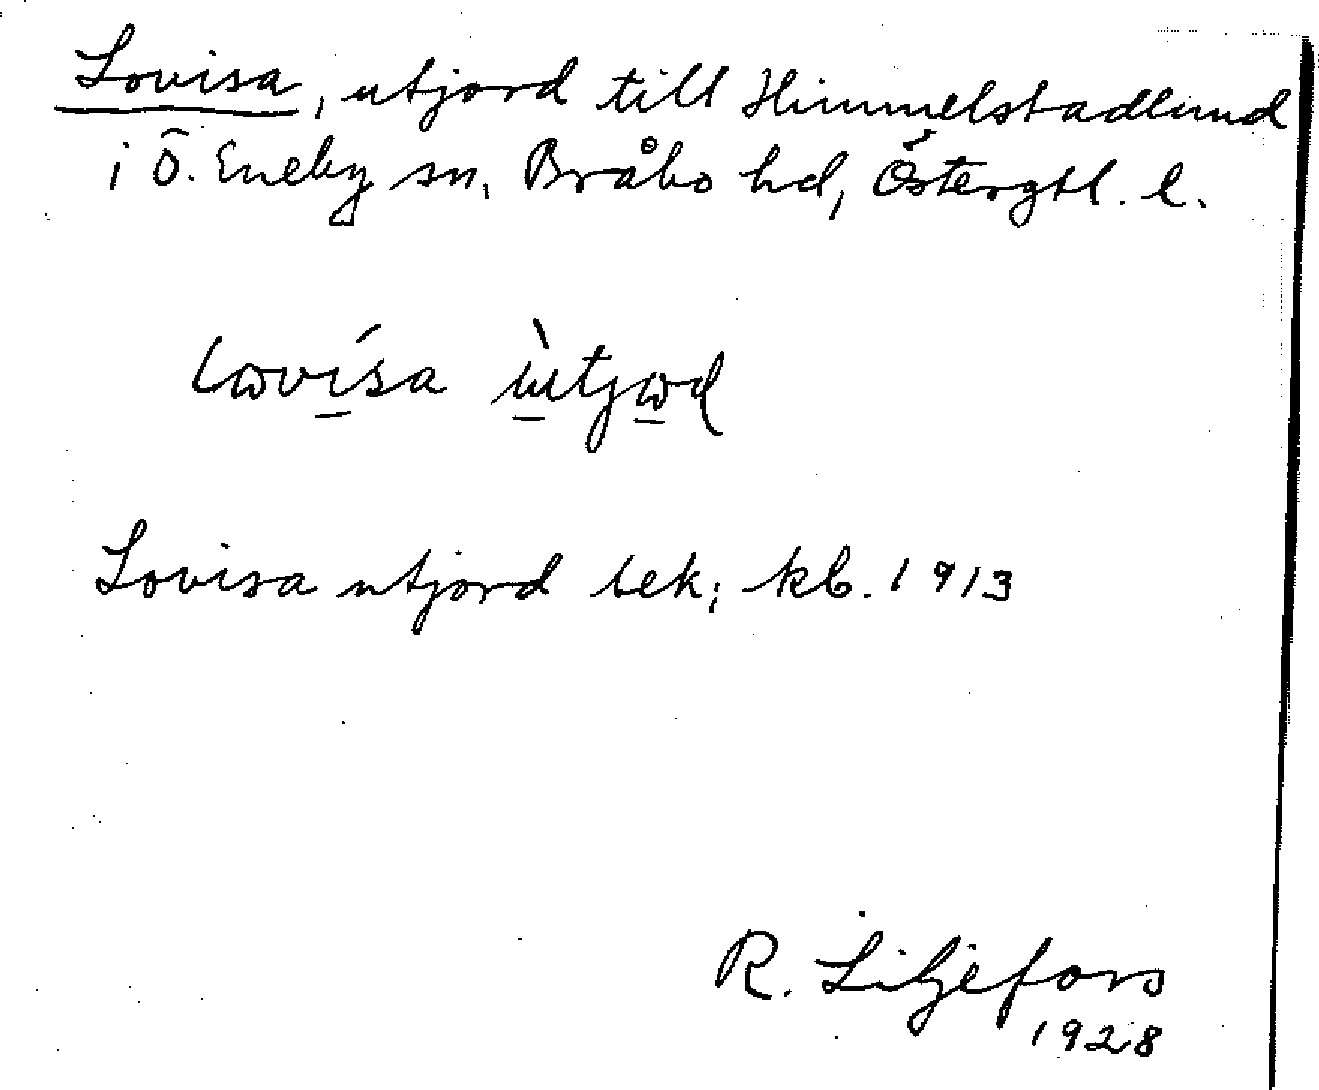 Lovisa, utjord till Himmelstadlund
i Ö. Eneby sn, Bråbo hd, Östergtl. l.
Lovisa utjord tek; kb. 1913
R. Liljefors
1928